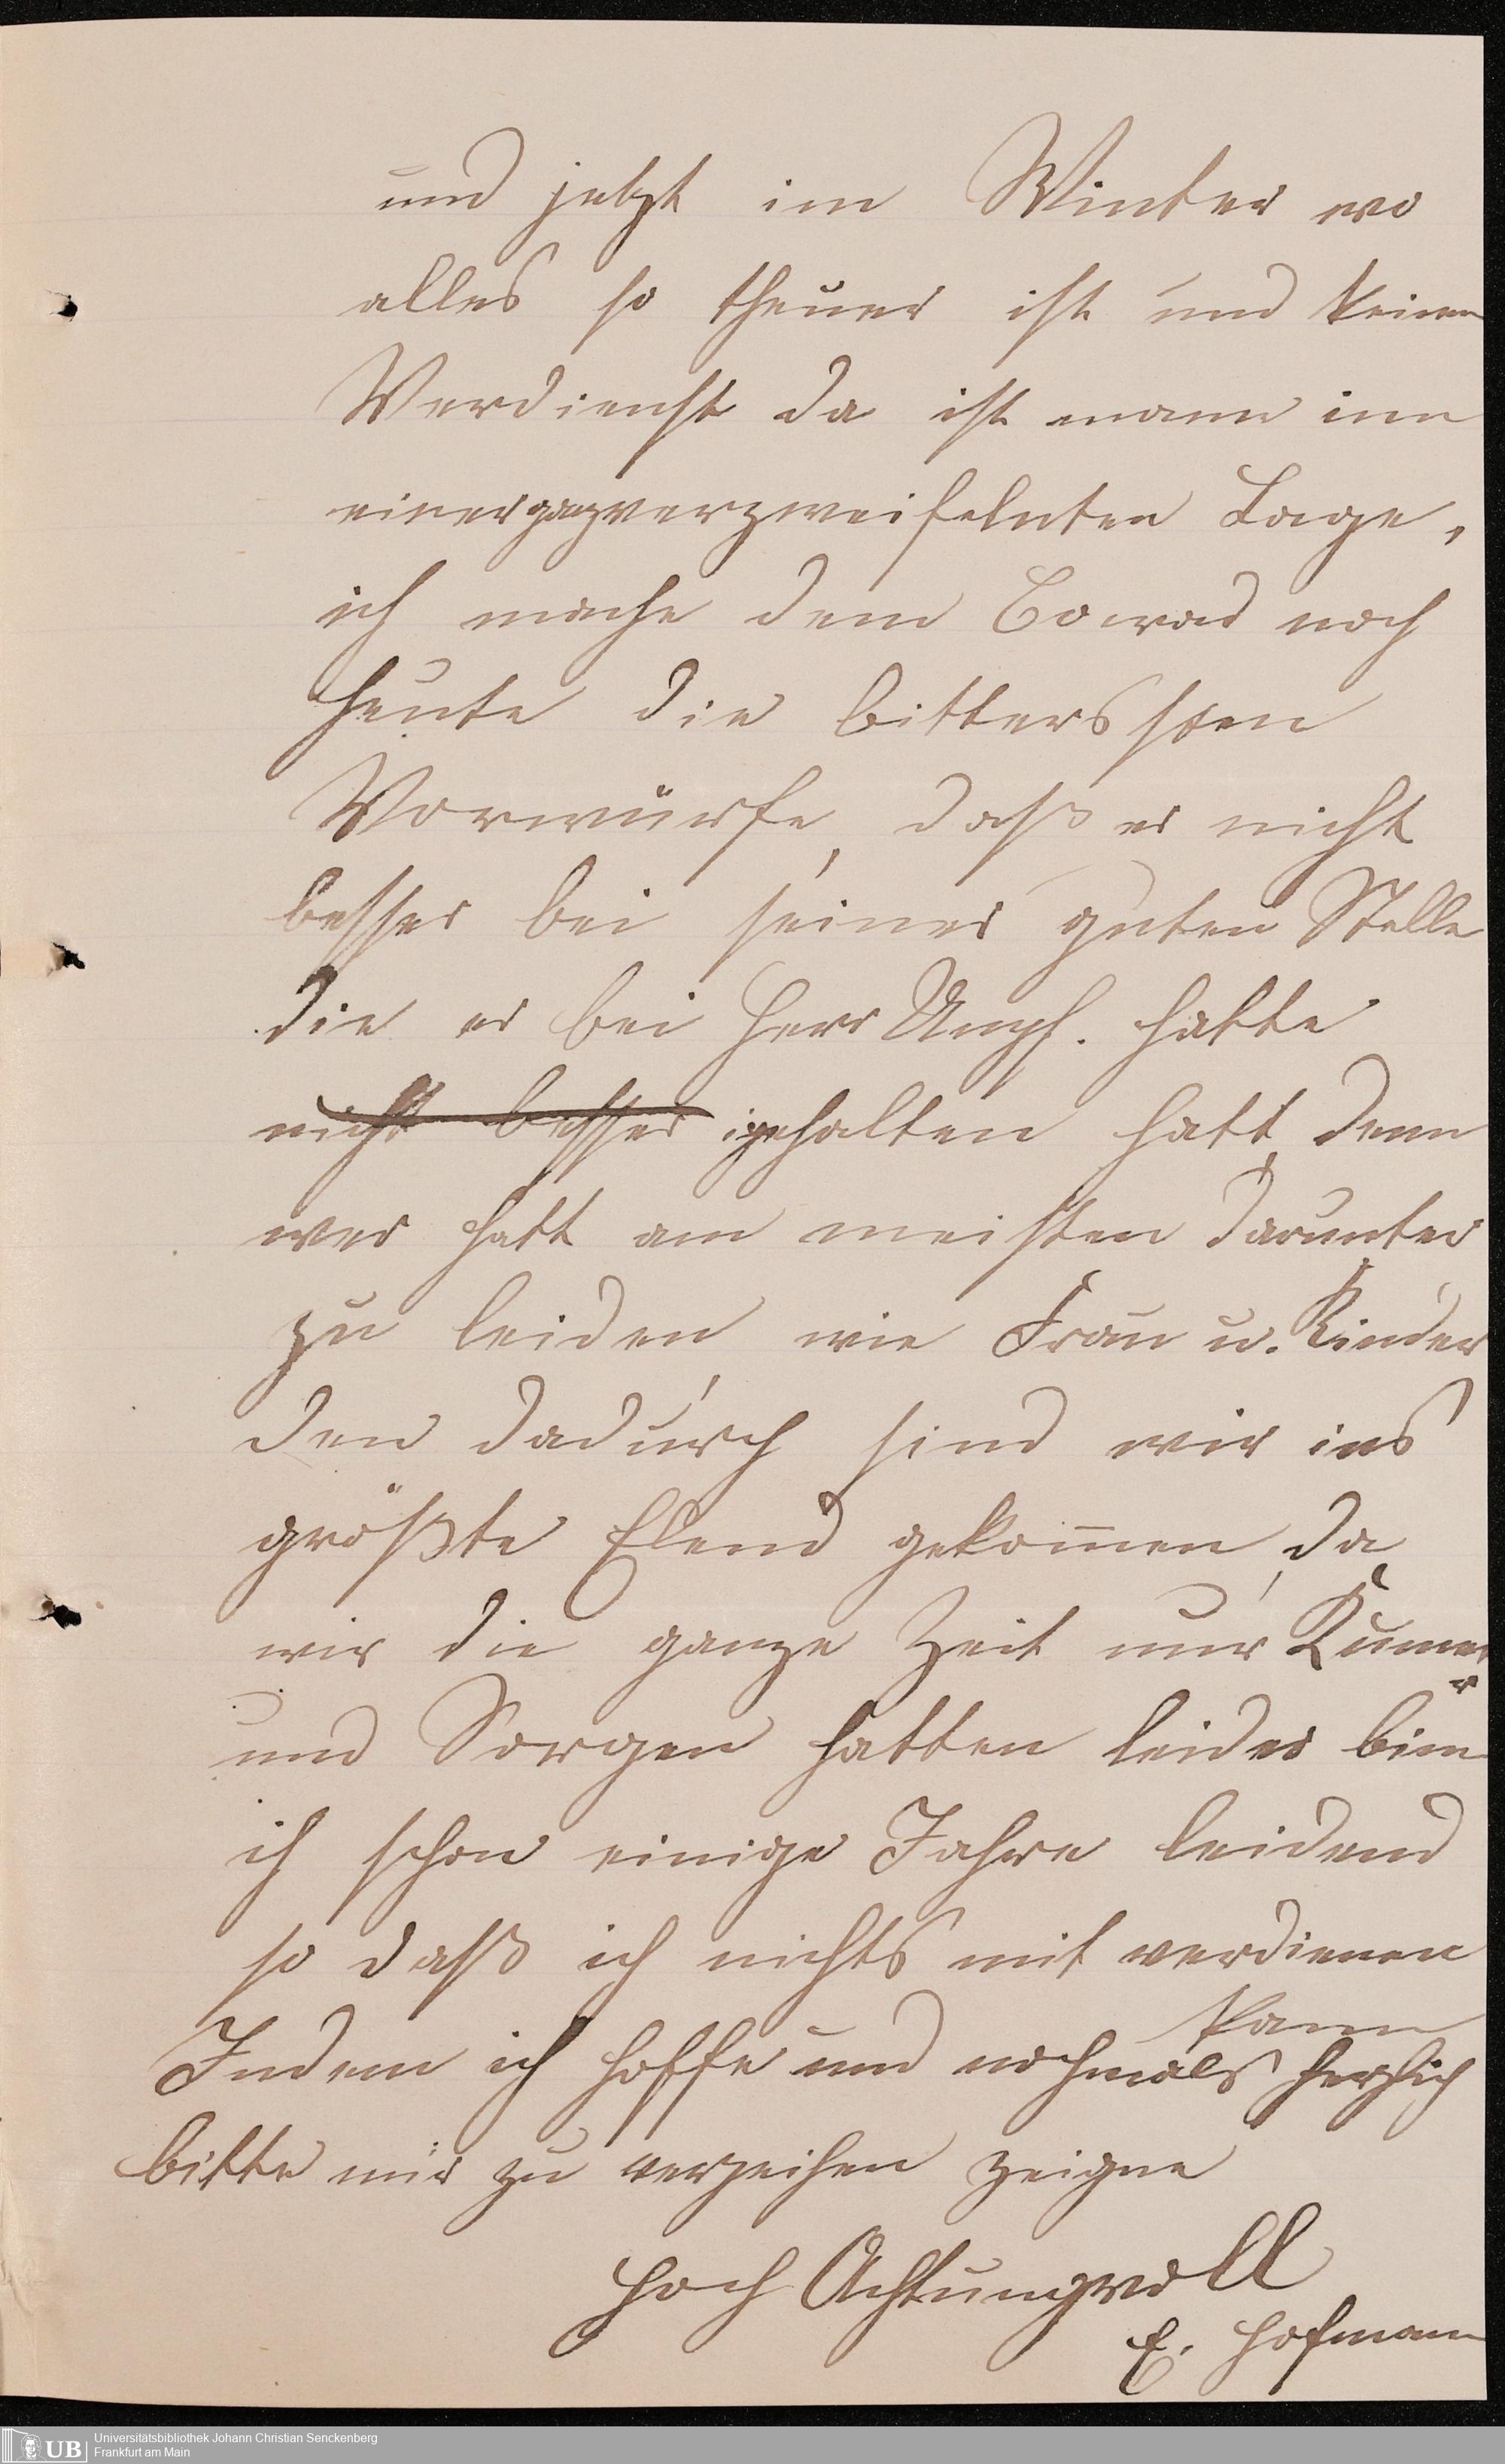 und jetzt im Winter wo
alles so theuer ist und keinen
Verdienst da ist mann inn
einer ganz verzweifelnten Lage,
ich mache dem Conrad noch
heute die bitterssten
Vorwürfe, daß er nicht
besser bei seiner guten Stelle
die er bei Herr Umpf. hatte
nicht besser gehalten hatt, denn
wer hatt am meisten darunter
zu leiden wie Frau u. Kinder
den dadurch sind wir ins
größte Elend gekom̄en, da
wir die ganze Zeit nur Kumer
und Sorgen hatten leider bin
ich schon einige Jahre leidend
so daß ich nichts mit verdienen
kann
Indem ich hoffe und nochmals herzlich
bitte mir zu verzeihen zeigne
Hoch Achtungvoll
E. Hofmann
UB Universitätsbibliothek Johann Christian Senckenberg
Frankfurt am Main